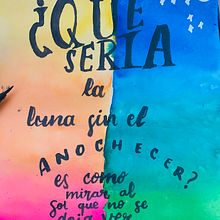 ¿QUE
SERIA
la
luna sin el
ANOCHECER?
es como
mirar al
Sol que no se
deja ver